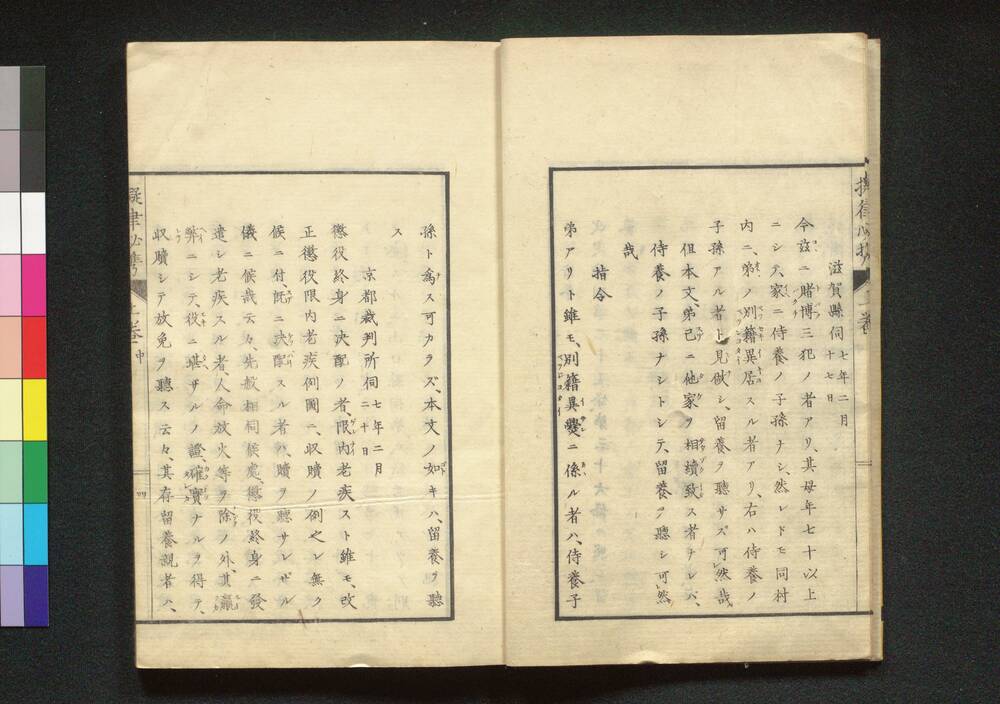 滋賀縣伺 七年二月十七日
今玆ニ賭博三犯ノ者アリ、其母年七十以上
ニシテ、家ニ侍養ノ子孫ナシ、然レドモ同村
内ニ、弟ノ別籍異居スル者アリ、右ハ侍養ノ
子孫アル者ト見做シ、留養ヲ聽サズ可然哉
但本文、弟已ニ他家ヲ相續致ス者ナレバ、
侍養ノ子孫ナシトシテ、留養ヲ聽シ可然
哉
指令
弟アリト雖モ、別籍異爨ニ係ル者ハ、侍養子
孫ト為ス可カラズ、本文ノ如キハ、留養ヲ聽
ス
京都裁判所伺 七年二月二十日
懲役終身ニ決配ノ者、限內老疾スト雖モ、改
正懲役限内老疾例圖ニ、収贖ノ例之レ無ク
候ニ付、既ニ決配スル者ハ、贖ヲ聽サレザル
儀ニ候哉云々、先般相伺候處、懲役終身ニ發
遣シ老疾スル者、人命放火等ヲ除ノ外、其羸
弊ニシテ、役ニ堪ザルノ證、確實ナルヲ得テ、
収贖シテ放免ヲ聽ス云々、其存留養親者ハ、
擬律必携 上巻 中
四